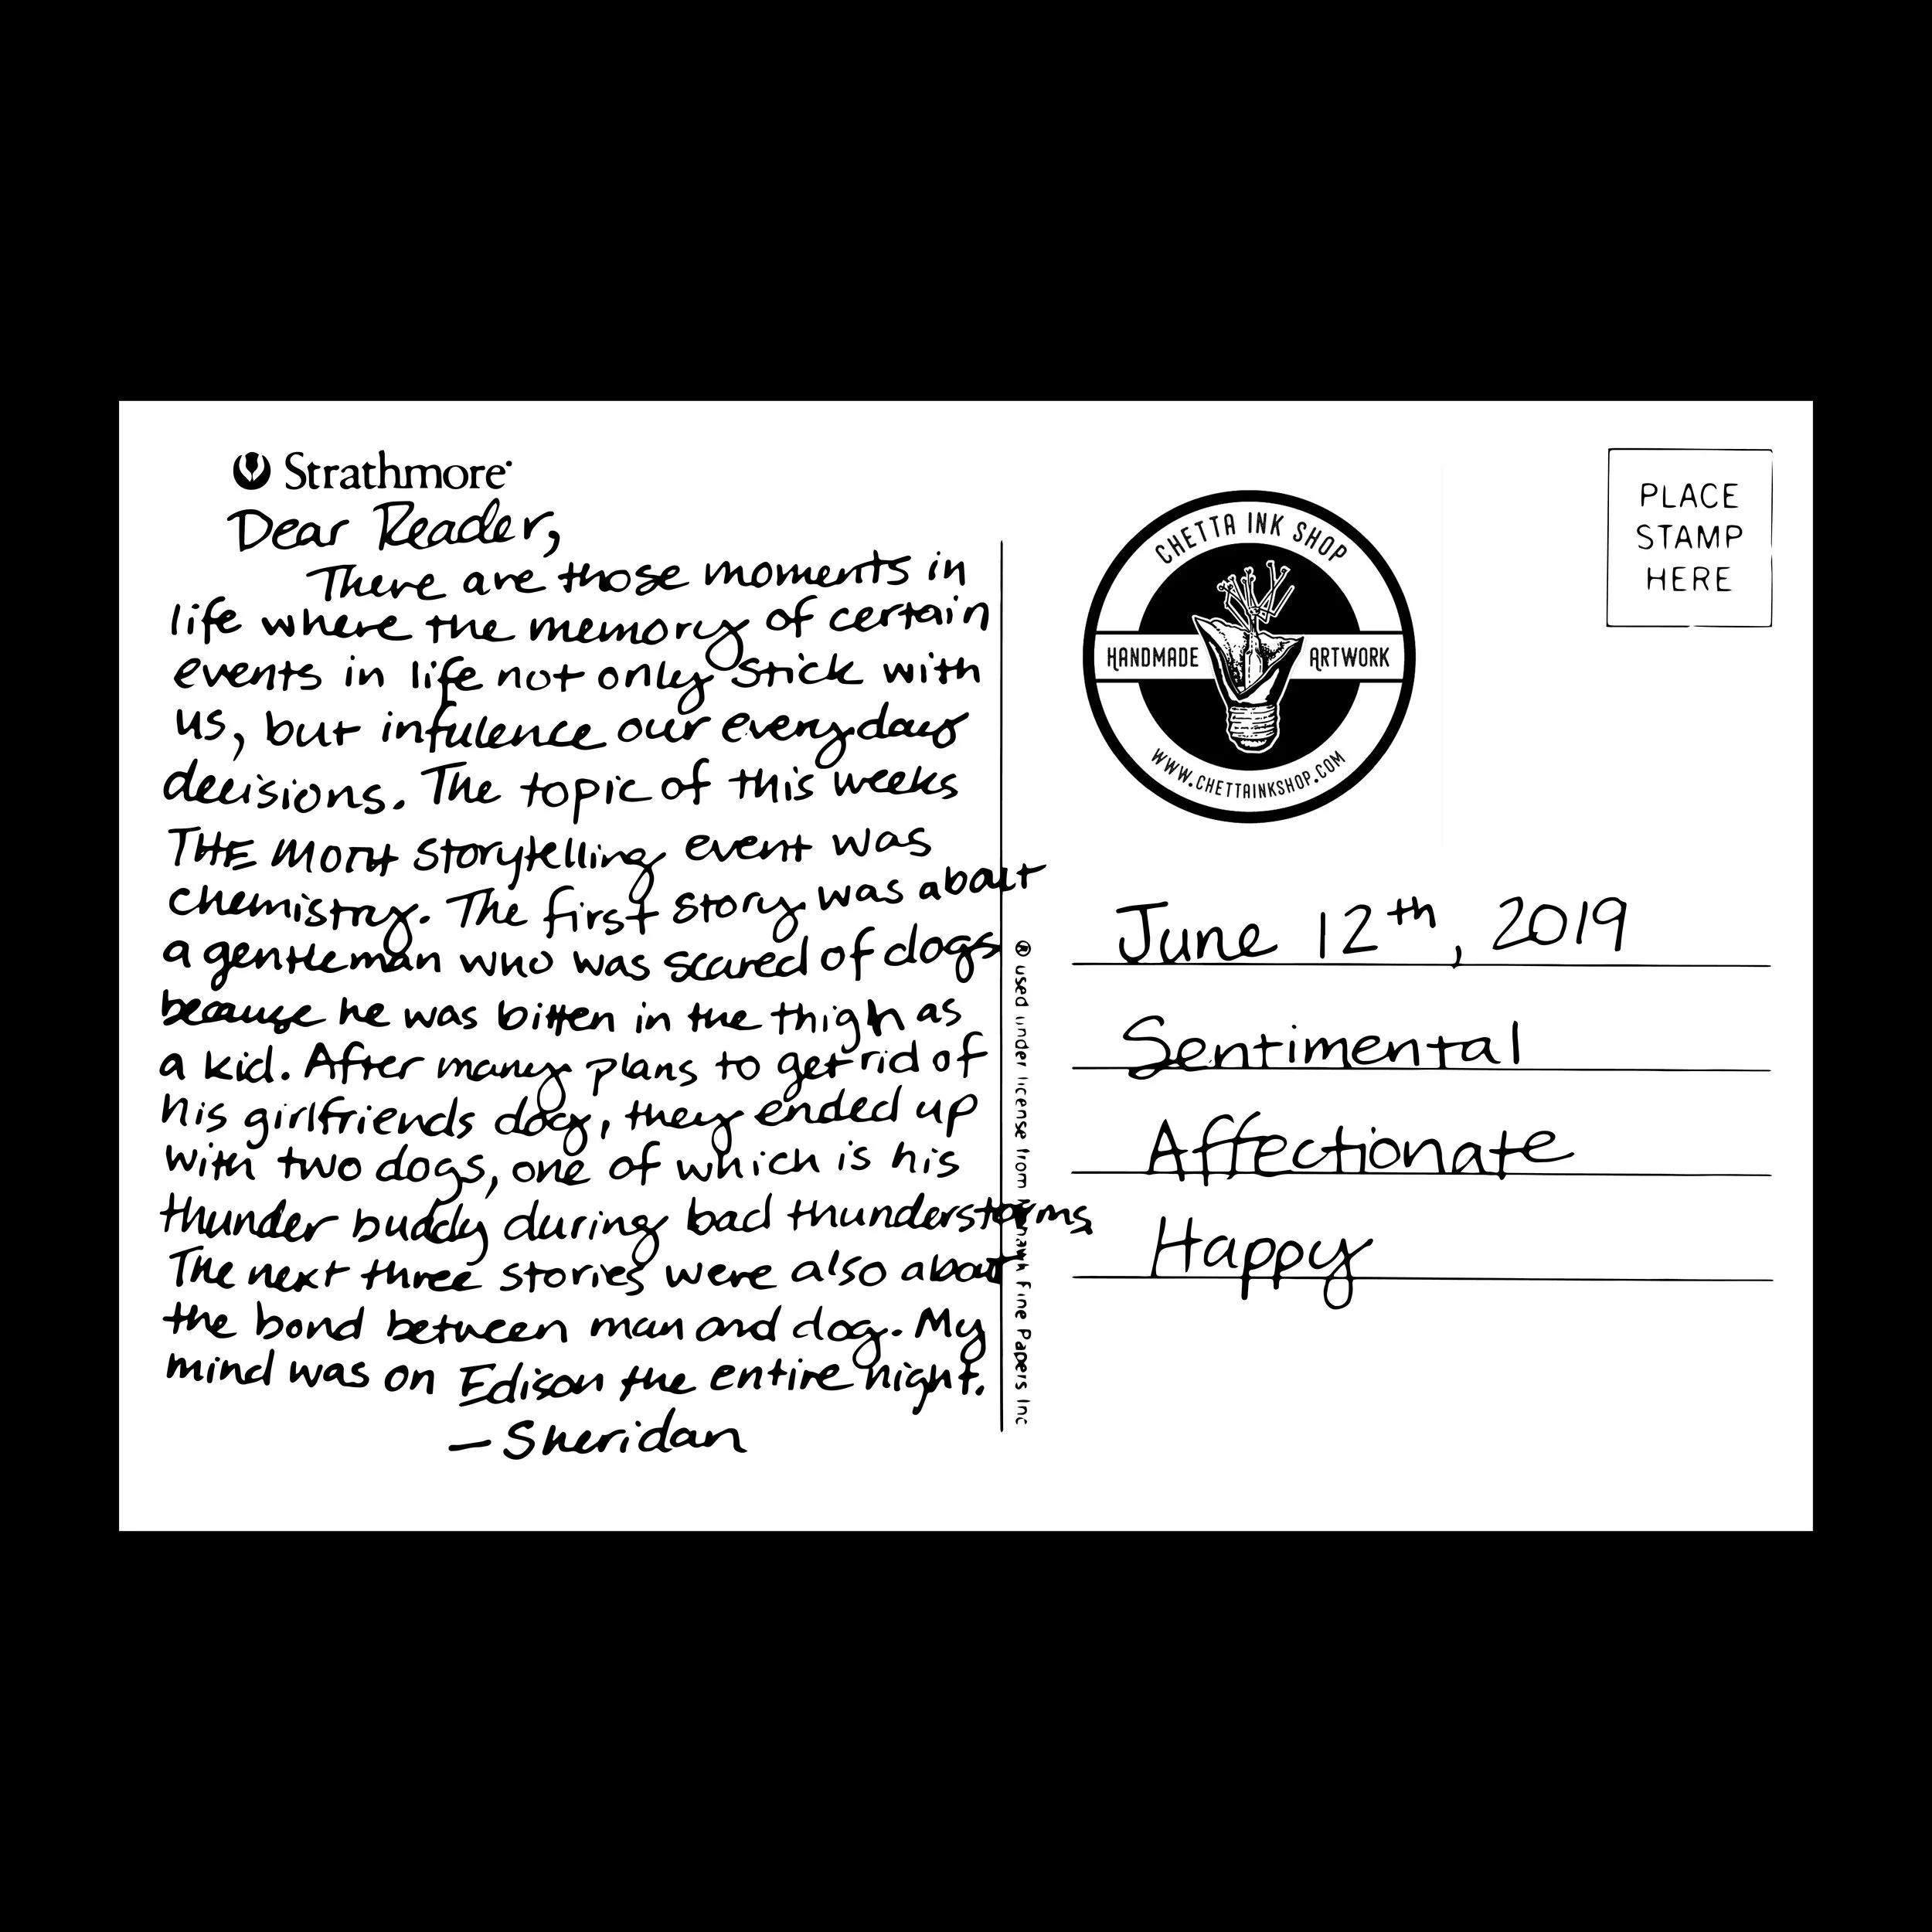 Strathmore
Dear Reader,
There are those moments in
life where the memory of certain
events in life not only stick with
us, but infulence our everyday
decisions. The topic of this weeks
THE MOTH storytelling event was
chemistry. The first story was about
a gentleman who was scared of dogs
because he was bitten in the thigh as
a kid. After many plans to get rid of
his girlfriends dog, they ended up
with two dogs, one of which is his
thunder buddy during bad thunderstorms.
The next three stories were also about
the bond between man and dog. My
mind was on Edison the entire night.
—Sheridan
® used under license from Mohawk Fine Papers Inc
CHETTA INK SHOP
HANDMADE ARTWORK
WWW.CHETTAINKSHOP.COM
PLACE
STAMP
HERE
June 12th, 2019
Sentimental
Affectionate
Happy